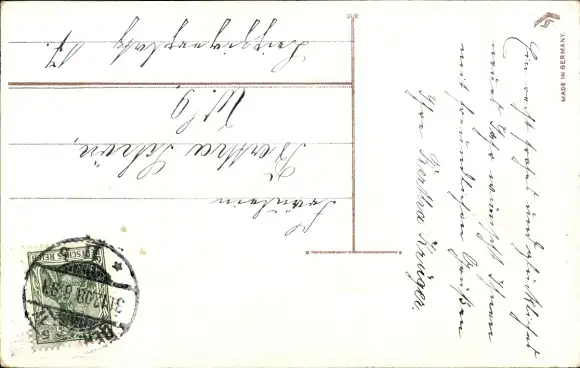 Ein recht frohes und glückliches
neues Jahr wünscht Ihnen
mit freundlichen Grüßen
Ihre Bertha Krüger.
Fräulein
Bertha Schön,
W. 9,
Leipzigerplatz 17.
MADE IN GERMANY.
DEUTSCHES REICH
5
31.12.09